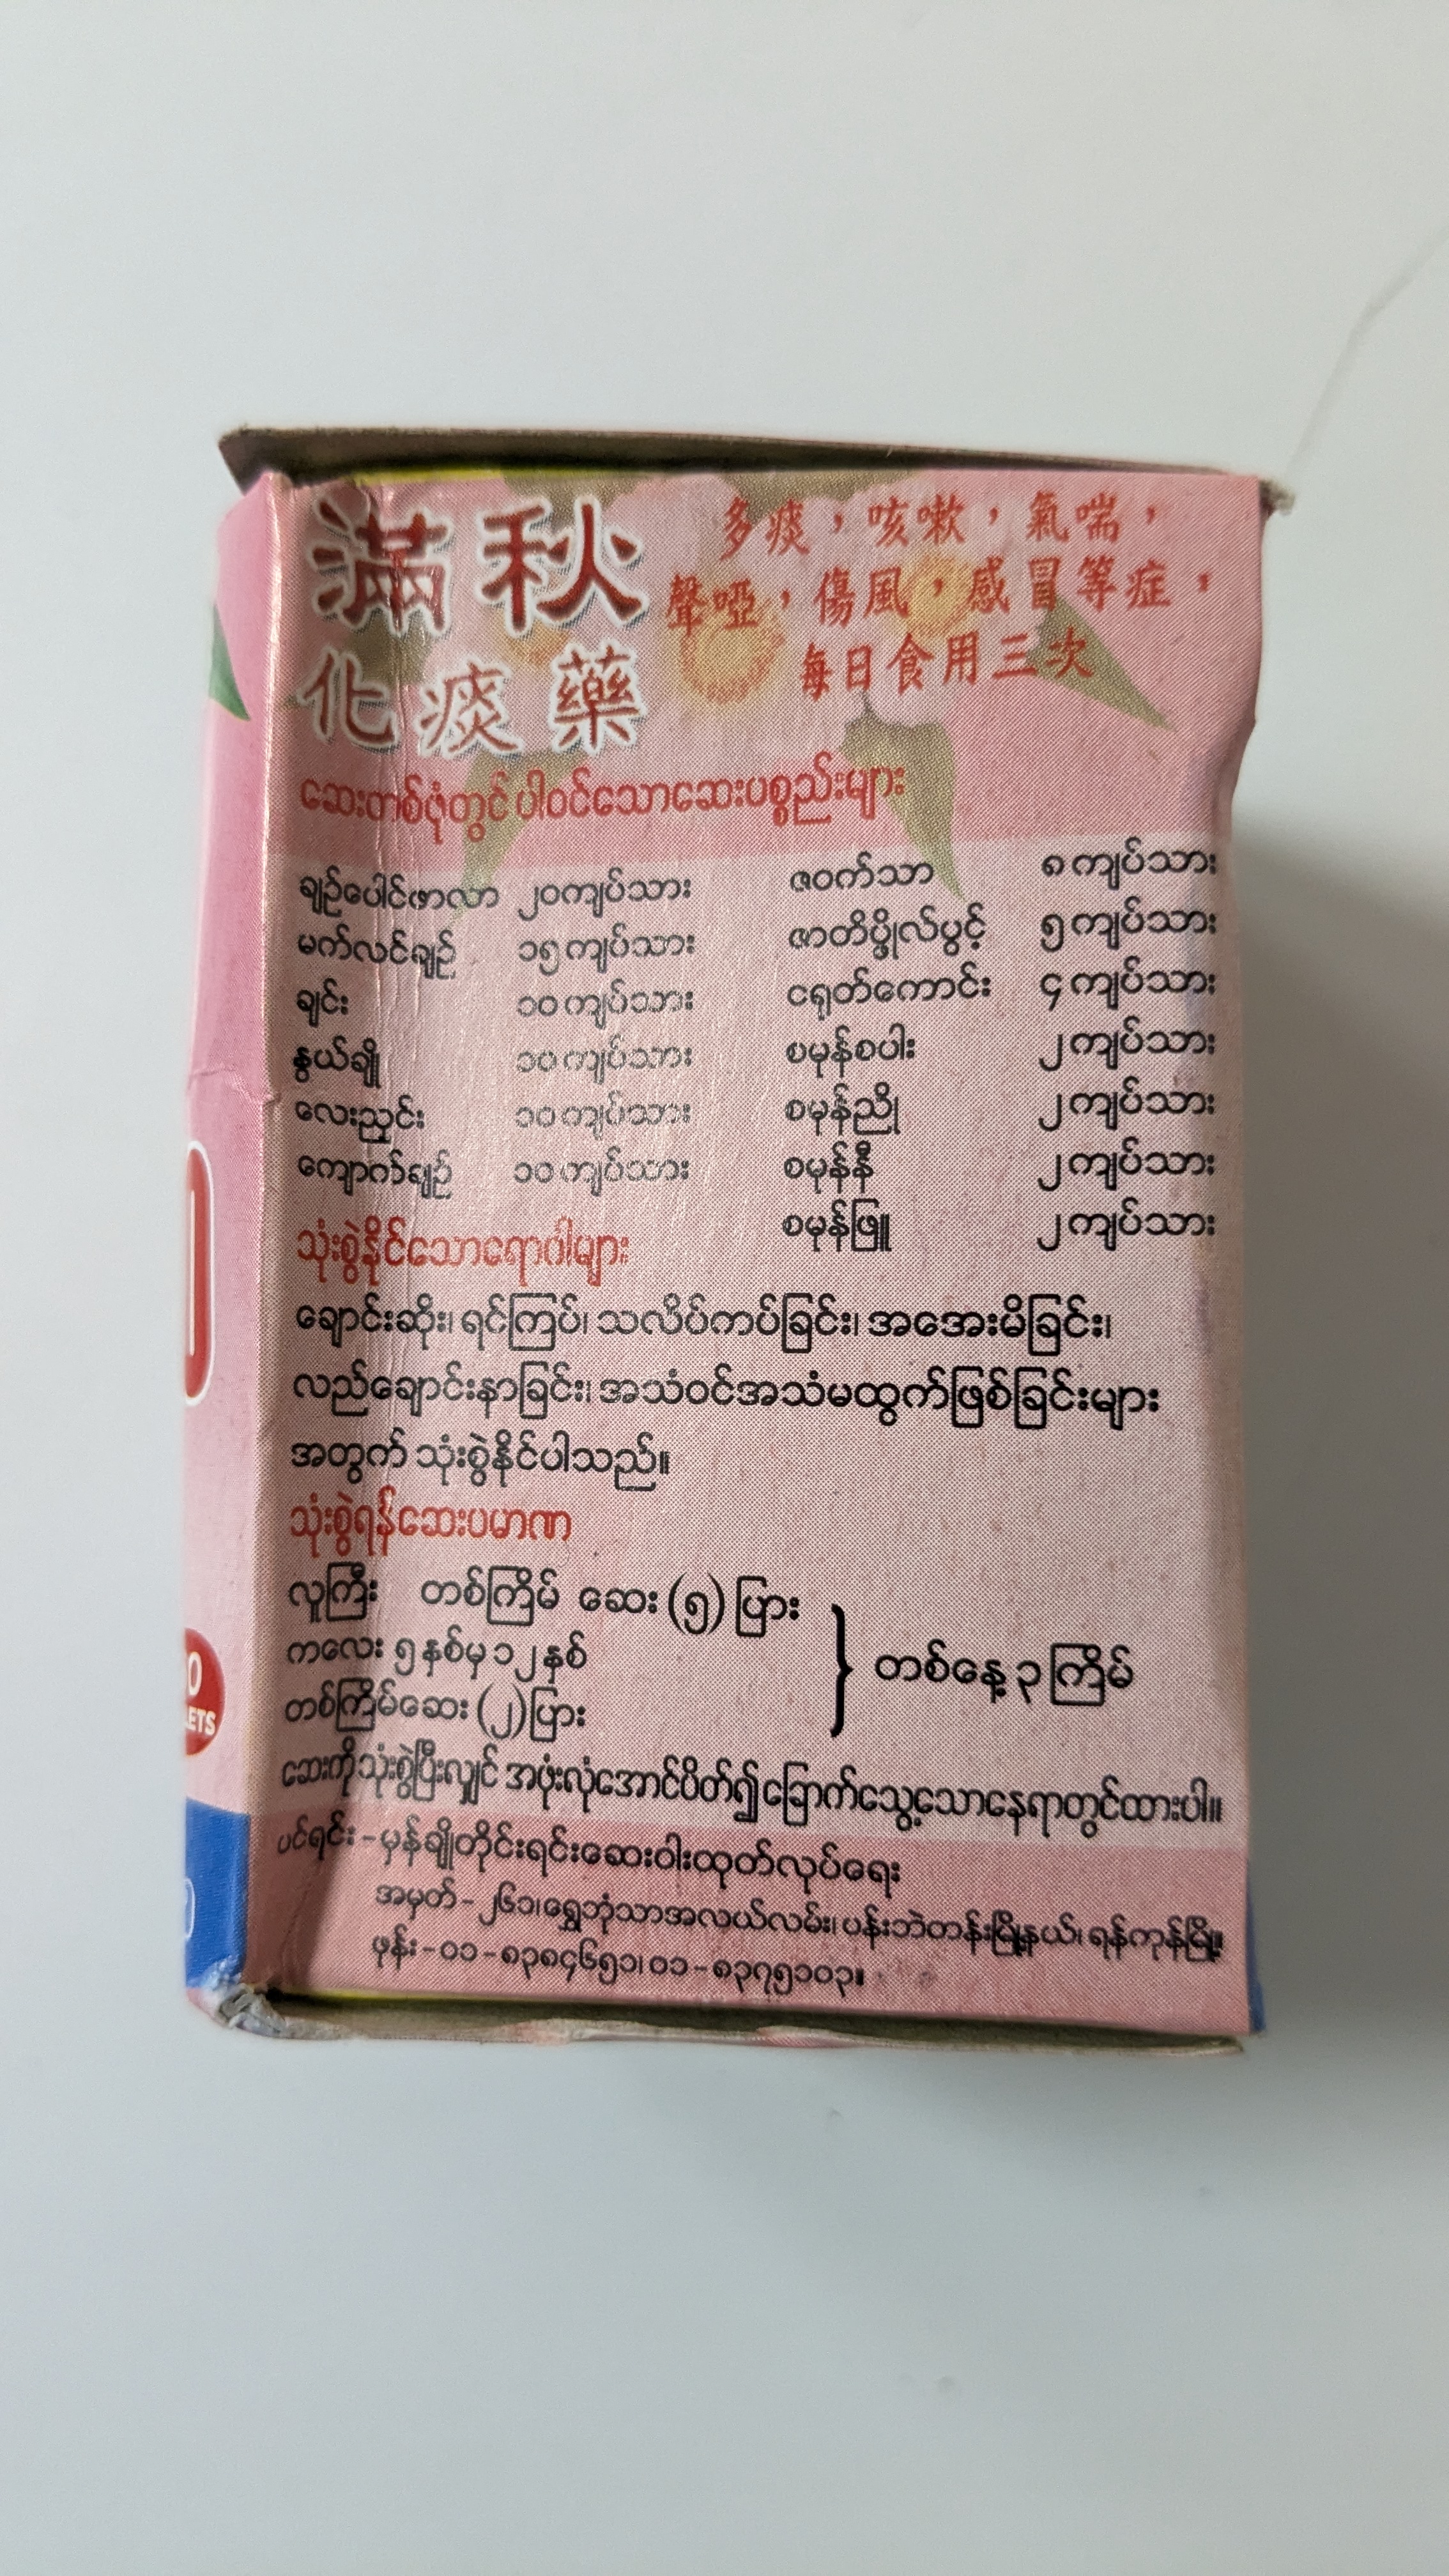 滿秋
化痰藥
多痰，咳嗽，氣喘，
聲啞，傷風，感冒等症，
每日食用三次
ဆေးတစ်ပုံတွင် ပါဝင်သောဆေးပစ္စည်းများ
ချဉ်ပေါင်ဖာလာ ၂၀ကျပ်သား
မက်လင်ချဉ် ၁၅ကျပ်သား
ချင်း ၁၀ကျပ်သား
နွယ်ချို ၁၀ကျပ်သား
လေးညှင်း ၁၀ကျပ်သား
ကျောက်ချဉ် ၁၀ကျပ်သား
ဇဝက်သာ ၈ကျပ်သား
ဇာတိပ္ဖိုလ်ပွင့် ၅ကျပ်သား
ငရုတ်ကောင်း ၄ကျပ်သား
စမုန်စပါး ၂ကျပ်သား
စမုန်ညို ၂ကျပ်သား
စမုန်နီ ၂ကျပ်သား
စမုန်ဖြူ ၂ကျပ်သား
သုံးစွဲနိုင်သောရောဂါများ
ချောင်းဆိုး၊ ရင်ကြပ်၊ သလိပ်ကပ်ခြင်း၊ အအေးမိခြင်း၊
လည်ချောင်းနာခြင်း၊ အသံဝင်အသံမထွက်ဖြစ်ခြင်းများ
အတွက် သုံးစွဲနိုင်ပါသည်။
သုံးစွဲရန်ဆေးပမာဏ
လူကြီး တစ်ကြိမ် ဆေး (၅) ပြား
ကလေး ၅နှစ်မှ ၁၂နှစ်
တစ်ကြိမ်ဆေး (၂) ပြား
} တစ်နေ့ ၃ ကြိမ်
ဆေးကိုသုံးစွဲပြီးလျှင် အဖုံးလုံအောင်ပိတ်၍ ခြောက်သွေ့သောနေရာတွင်ထားပါ။
ပင်ရင်း - မှန်ချိုတိုင်းရင်းဆေးဝါးထုတ်လုပ်ရေး
အမှတ် - ၂၆၁၊ ရွှေဘုံသာအလယ်လမ်း၊ ပန်းဘဲတန်းမြို့နယ်၊ ရန်ကုန်မြို့။
ဖုန်း - ၀၁ - ၈၃၈၄၆၅၁၊ ၀၁ - ၈၃၇၅၁၀၃။